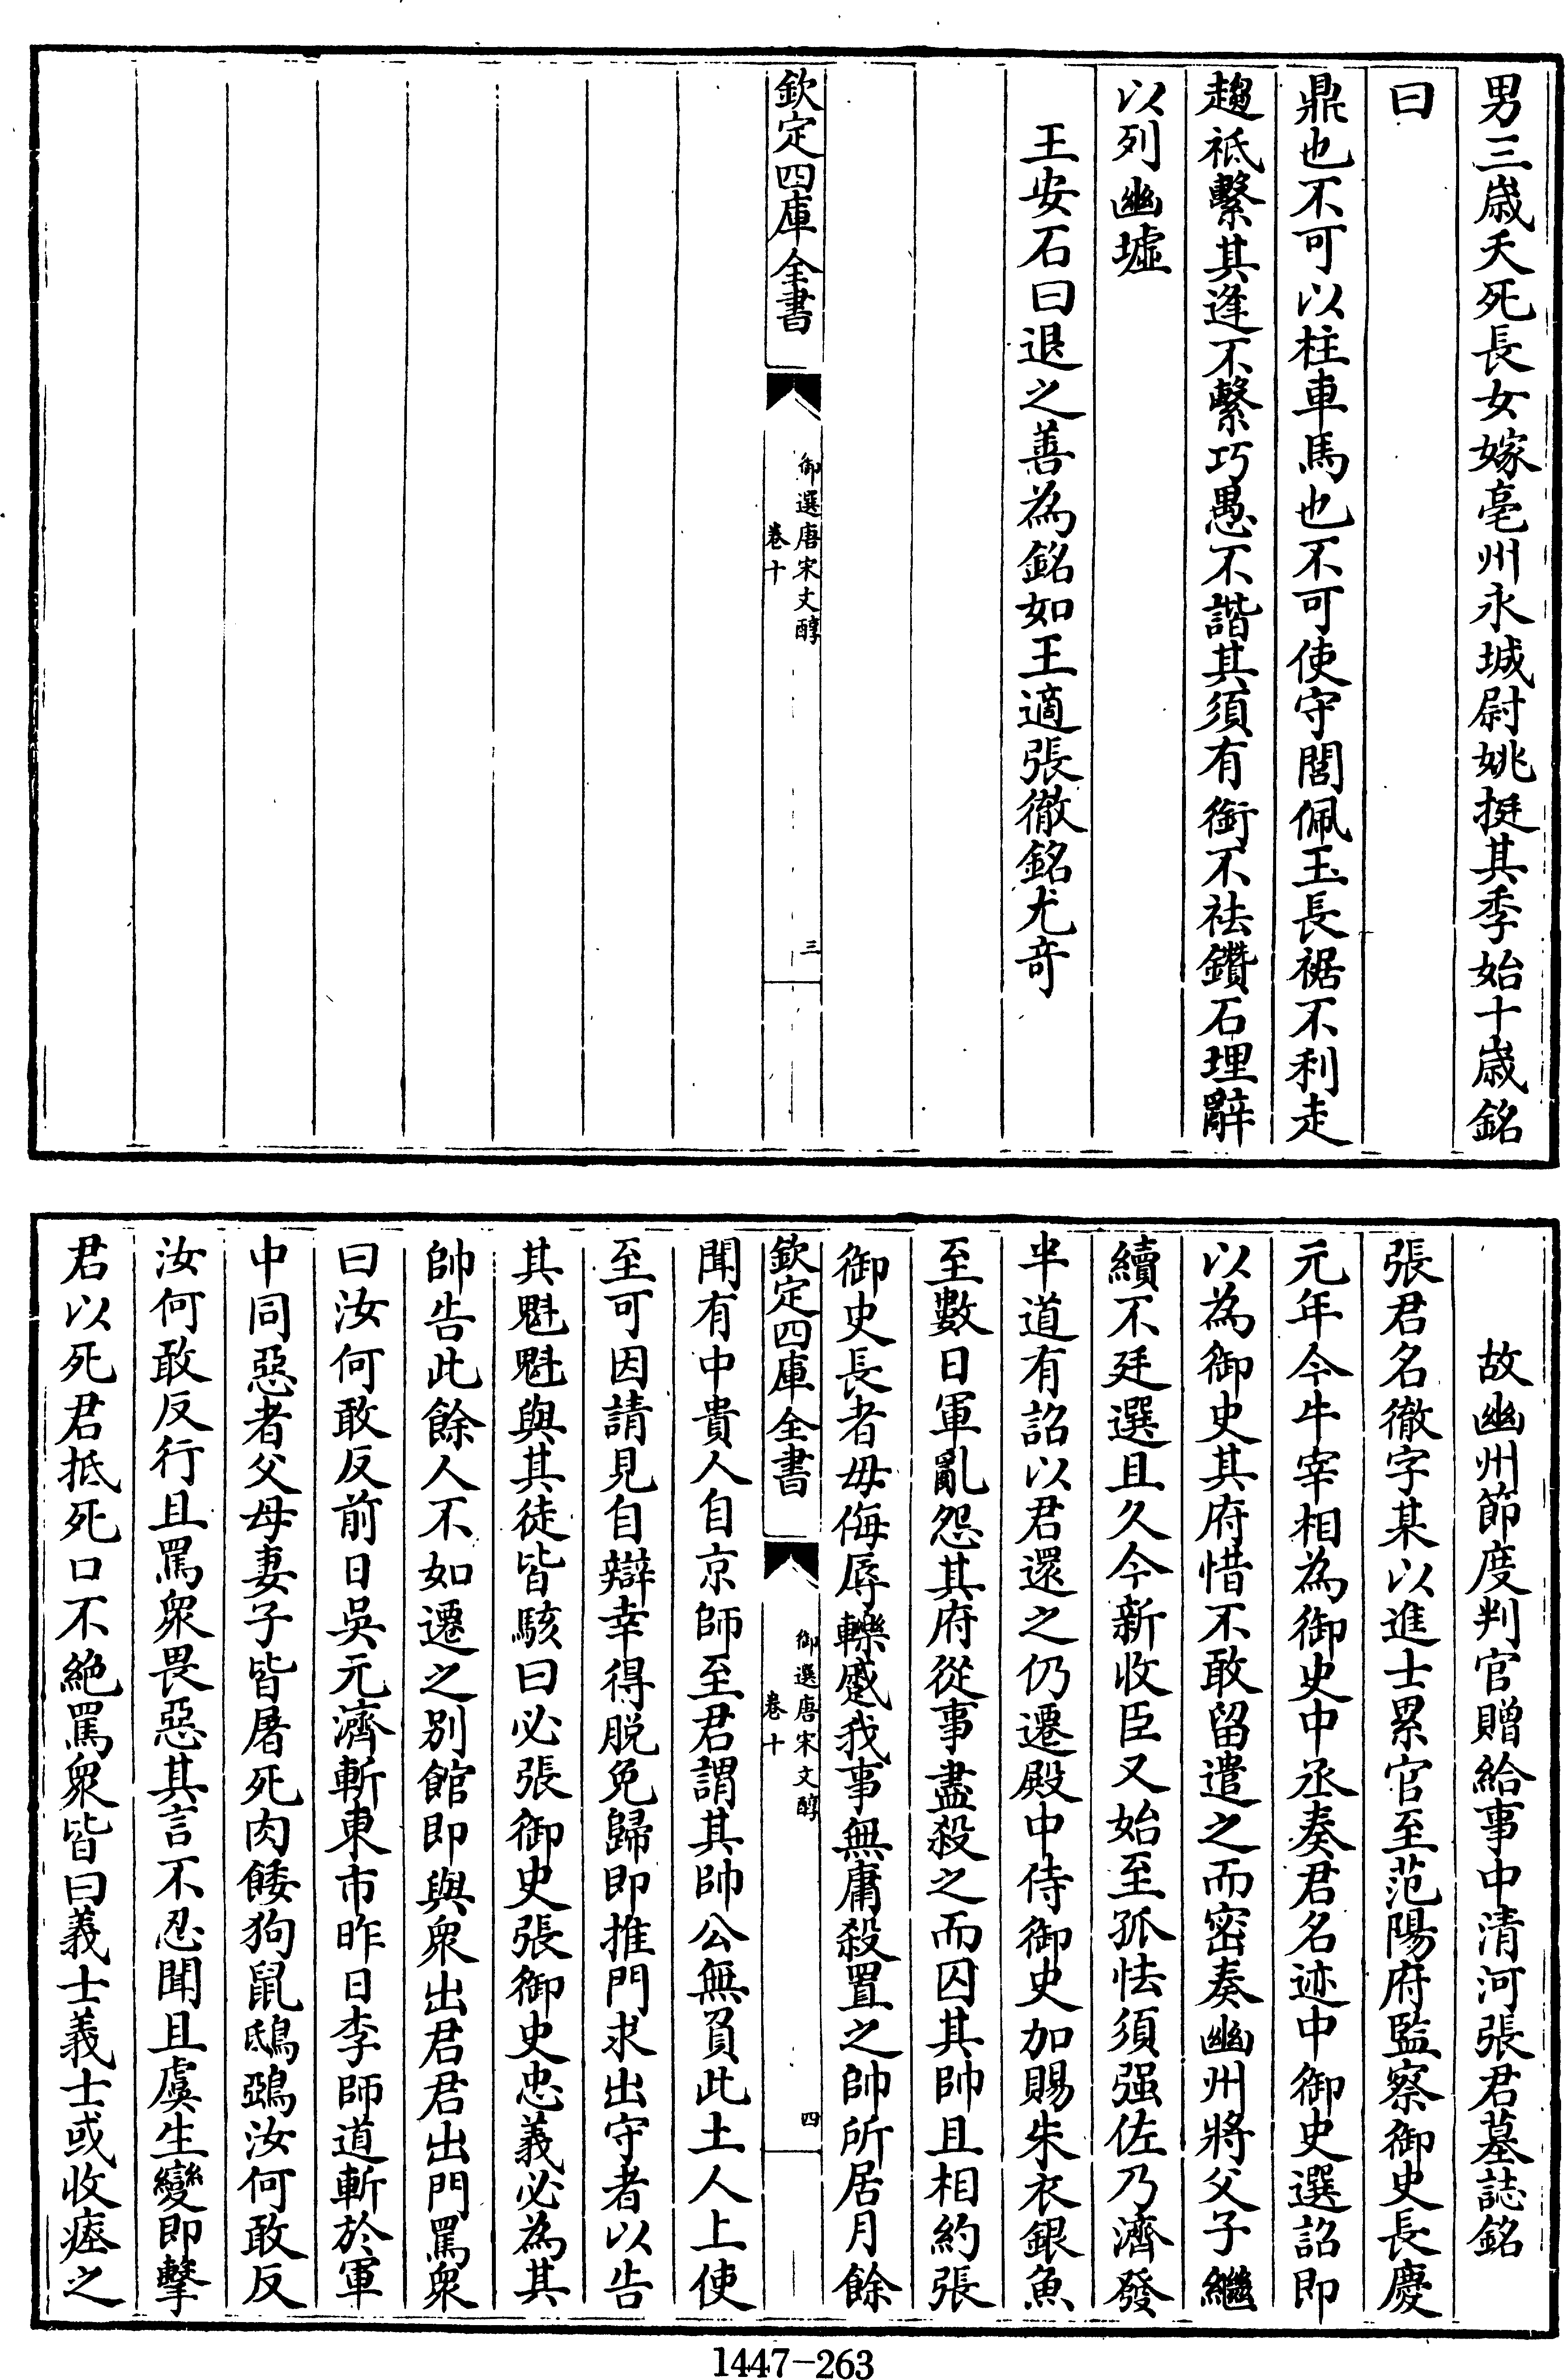 男三歳夭死長女嫁亳州永城尉姚挺其季始十歳銘
曰
鼎也不可以柱車馬也不可使守閭佩玉長裾不利走
趨祗繫其逢不繫巧愚不諧其須有銜不祛鑽石埋辭
以列幽墟
王安石曰退之善為銘如王適張徹銘尤竒
欽定四庫全書
御選唐宋文醇
卷十
三
故幽州節度判官贈給事中清河張君墓誌銘
張君名徹字某以進士累官至范陽府監察御史長慶
元年今牛宰相為御史中丞奏君名迹中御史選詔即
以為御史其府惜不敢留遣之而密奏幽州將父子繼
續不廷選且久今新收臣又始至孤怯須强佐乃濟發
半道有詔以君還之仍遷殿中侍御史加賜朱衣銀魚
至數日軍亂怨其府從事盡殺之而囚其帥且相約張
御史長者毋侮辱轢蹙我事無庸殺置之帥所居月餘
欽定四庫全書
御選唐宋文醇
卷十
四
聞有中貴人自京師至君謂其帥公無負此土人上使
至可因請見自辯幸得脱免歸即推門求出守者以告
其魁魁與其徒皆駭曰必張御史張御史忠義必為其
帥告此餘人不如遷之别館即與衆出君君出門罵衆
曰汝何敢反前日吳元濟斬東市昨日李師道斬於軍
中同惡者父母妻子皆屠死肉餧狗鼠鴟鵶汝何敢反
汝何敢反行且罵衆畏惡其言不忍聞且虞生變即擊
君以死君抵死口不絶罵衆皆曰義士義士或收瘞之
1447-263